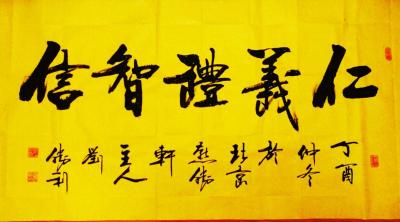 仁義禮智信
丁酉
仲冬
於
北京
軒
主人
劉
勝利